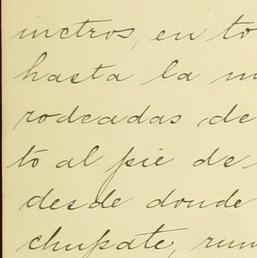 metros, en to
hasta la m
rodeadas de
to al pié de
desde donde
chupate, rum